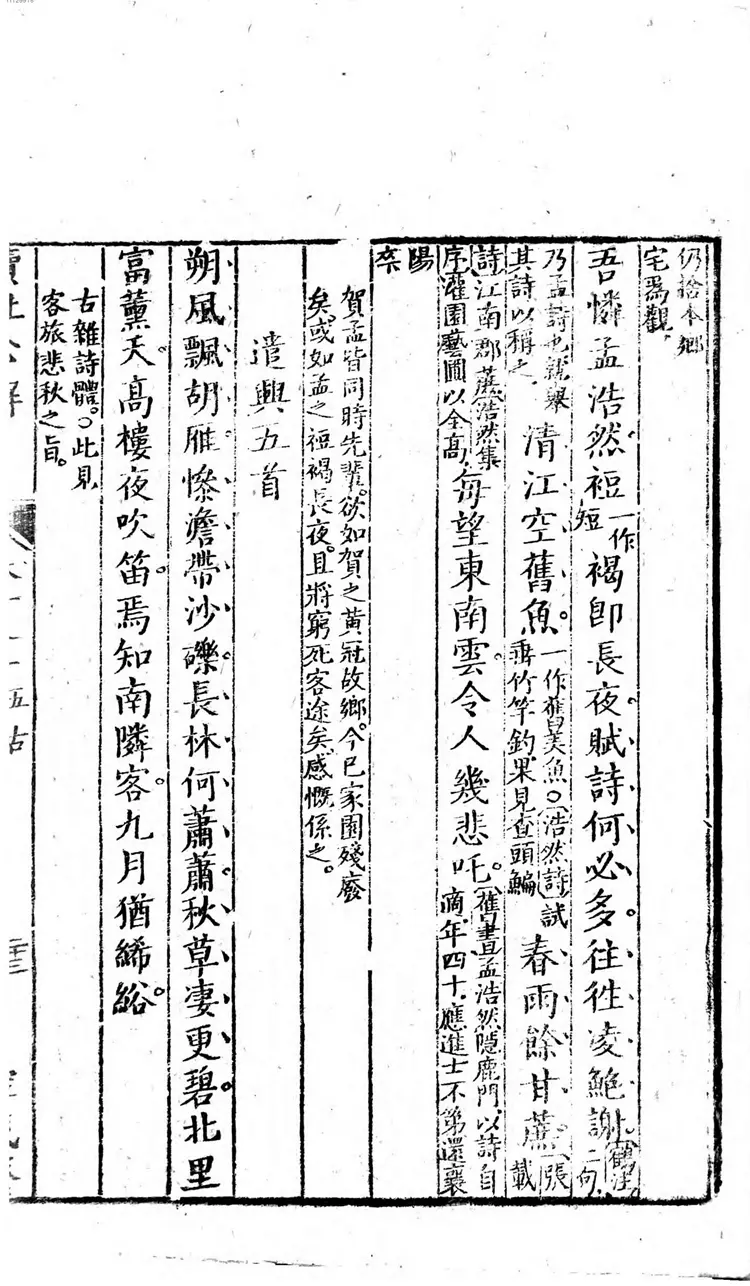 仍捨本鄉
宅爲觀
吾憐孟浩然裋一作短褐卽長夜賦詩何必多往往凌鮑謝上二句
乃孟詩也就舉
其詩以稱之
清江空舊魚一作舊美魚○浩然詩試
垂竹竿釣果見查頭鯿
春雨餘甘蔗張載
詩江南郡蔗浩然集
序灌園藝圃以全高
每望東南雲令人幾悲吒舊書孟浩然隱鹿門以詩自
適年四十應進士不第還襄
陽
卒
賀孟皆同時先輩欲如賀之黃冠故鄉今已家園殘廢
矣或如孟之裋褐長夜且將窮死客途矣感慨係之
遣興五首
朔風飄胡雁慘澹帶沙礫長林何蕭蕭秋草凄更碧北里
富薰天高樓夜吹笛焉知南隣客九月猶絺綌
古雜詩體○此見
客旅悲秋之旨